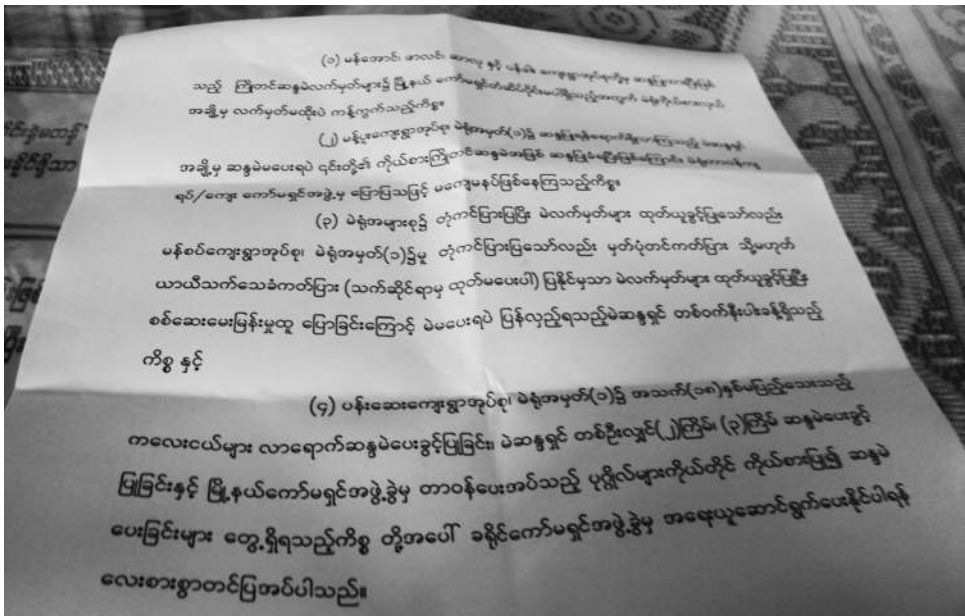 (၁) မန်အောင်၊ ဆန္ဒပြုလာကြ
သည့် ကြိုတင်ဆန္ဒမဲလက်မှတ်များ၌ မြို့နယ် ကော်မရှင်တံဆိပ်
အချို့မှ လက်မှတ်မထိုးပဲ ကန့်ကွက်သည့်ကိစ္စ။
(၂) ကျေးရွာအုပ်စု၊ မဲရုံအမှတ်(၁)၌
အချို့မှ ဆန္ဒမဲမပေးရပဲ ၎င်းတို့၏ ကိုယ်စားကြိုတင်ဆန္ဒမဲအဖြစ်
ရပ်/ကျေး ကော်မရှင်အဖွဲ့မှ ပြောပြသဖြင့် မကျေမနပ်ဖြစ်နေကြသည့်ကိစ္စ။
(၃) မဲရုံအများစု၌ တုံ့ကင်ပြားပြပြီး မဲလက်မှတ်များ ထုတ်ယူခွင့်ပြုသော်လည်း
မန်စပ်ကျေးရွာအုပ်စု၊ မဲရုံအမှတ်(၁)၌မူ တုံ့ကင်ပြားပြသော်လည်း မှတ်ပုံတင်ကတ်ပြား သို့မဟုတ်
ယာယီသက်သေခံကတ်ပြား (သက်ဆိုင်ရာမှ ထုတ်မပေးပါ) ပြနိုင်မှသာ မဲလက်မှတ်များ ထုတ်ယူခွင့်ပြုပြီး
စစ်ဆေးမေးမြန်းမှုထူ ပြောခြင်းကြောင့် မဲမပေးရပဲ ပြန်လှည့်ရသည့်မဲဆန္ဒရှင် တစ်ဝက်နီးပါးခန့်ရှိသည့်
ကိစ္စ နှင့်
(၄) ပန်းဆေးကျေးရွာအုပ်စု၊ မဲရုံအမှတ်(၁)၌ အသက်(၁၈)နှစ်မပြည့်သေးသည့်
ကလေးငယ်များ လာရောက်ဆန္ဒမဲပေးခွင့်ပြုခြင်း၊ မဲဆန္ဒရှင် တစ်ဦးလျှင်(၂)ကြိမ်၊ (၃)ကြိမ် ဆန္ဒမဲပေးခွင့်
ပြုခြင်းနှင့် မြို့နယ်ကော်မရှင်အဖွဲ့ခွဲမှ တာဝန်ပေးအပ်သည့် ပုဂ္ဂိုလ်များကိုယ်တိုင် ကိုယ်စားပြု၍ ဆန္ဒမဲ
ပေးခြင်းများ တွေ့ရှိရသည့်ကိစ္စ တို့အပေါ် ခရိုင်ကော်မရှင်အဖွဲ့ခွဲမှ အရေးယူဆောင်ရွက်ပေးနိုင်ပါရန်
လေးစားစွာတင်ပြအပ်ပါသည်။